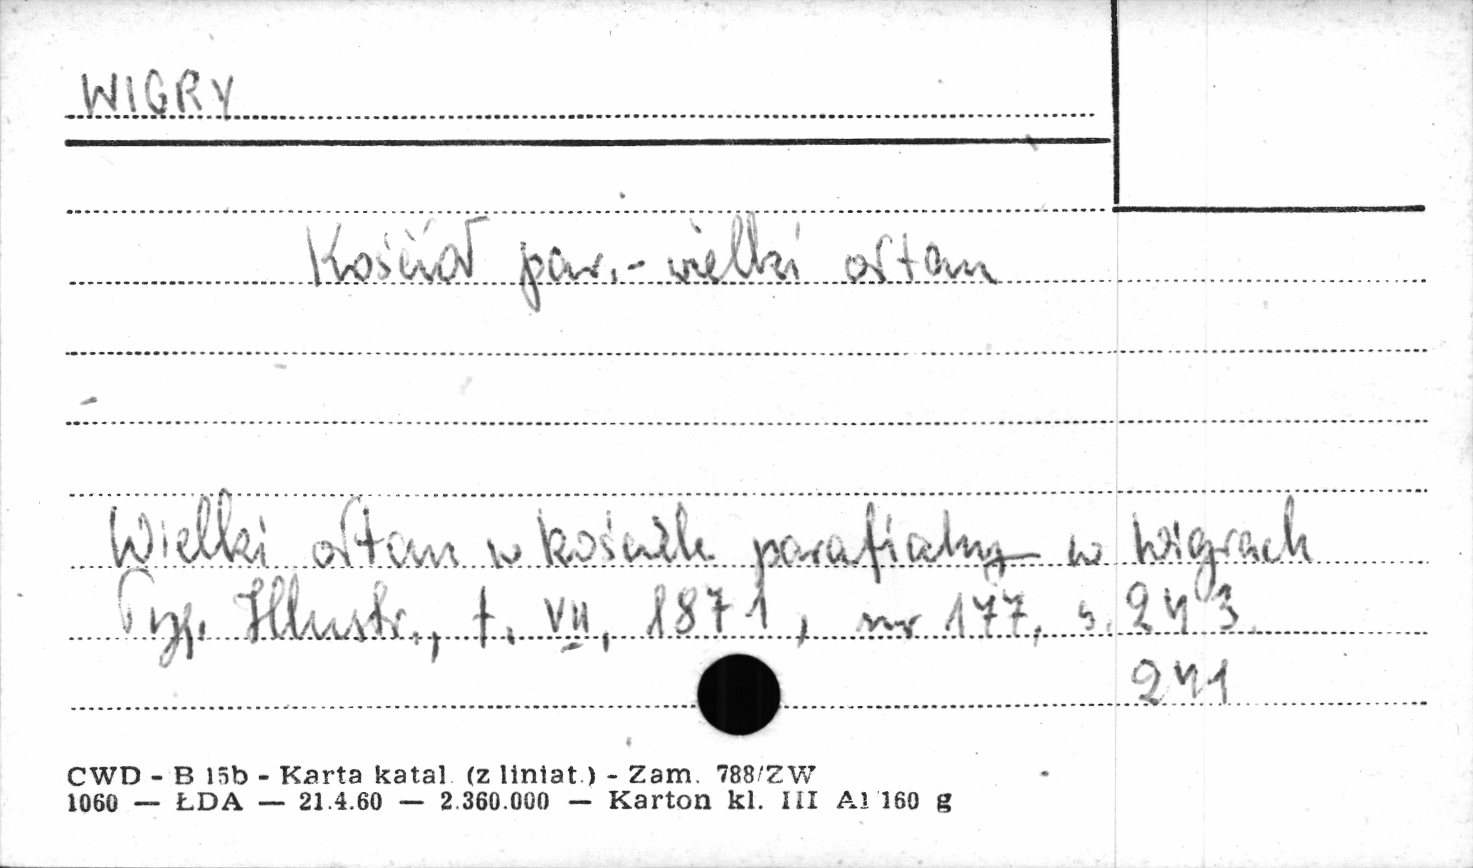 WIGRY
Kościół par. - wielki ołtarz
Wielki ołtarz w kościele parafialny w Wigrach
Tyg. Illustr., t. VII, 1871, nr 177, s. 243.
241
CWD - B 15b - Karta katal. (z liniat.) - Zam. 788/ZW
1060 — ŁDA — 21.4.60 — 2.360.000 — Karton kl. III A1 160 g